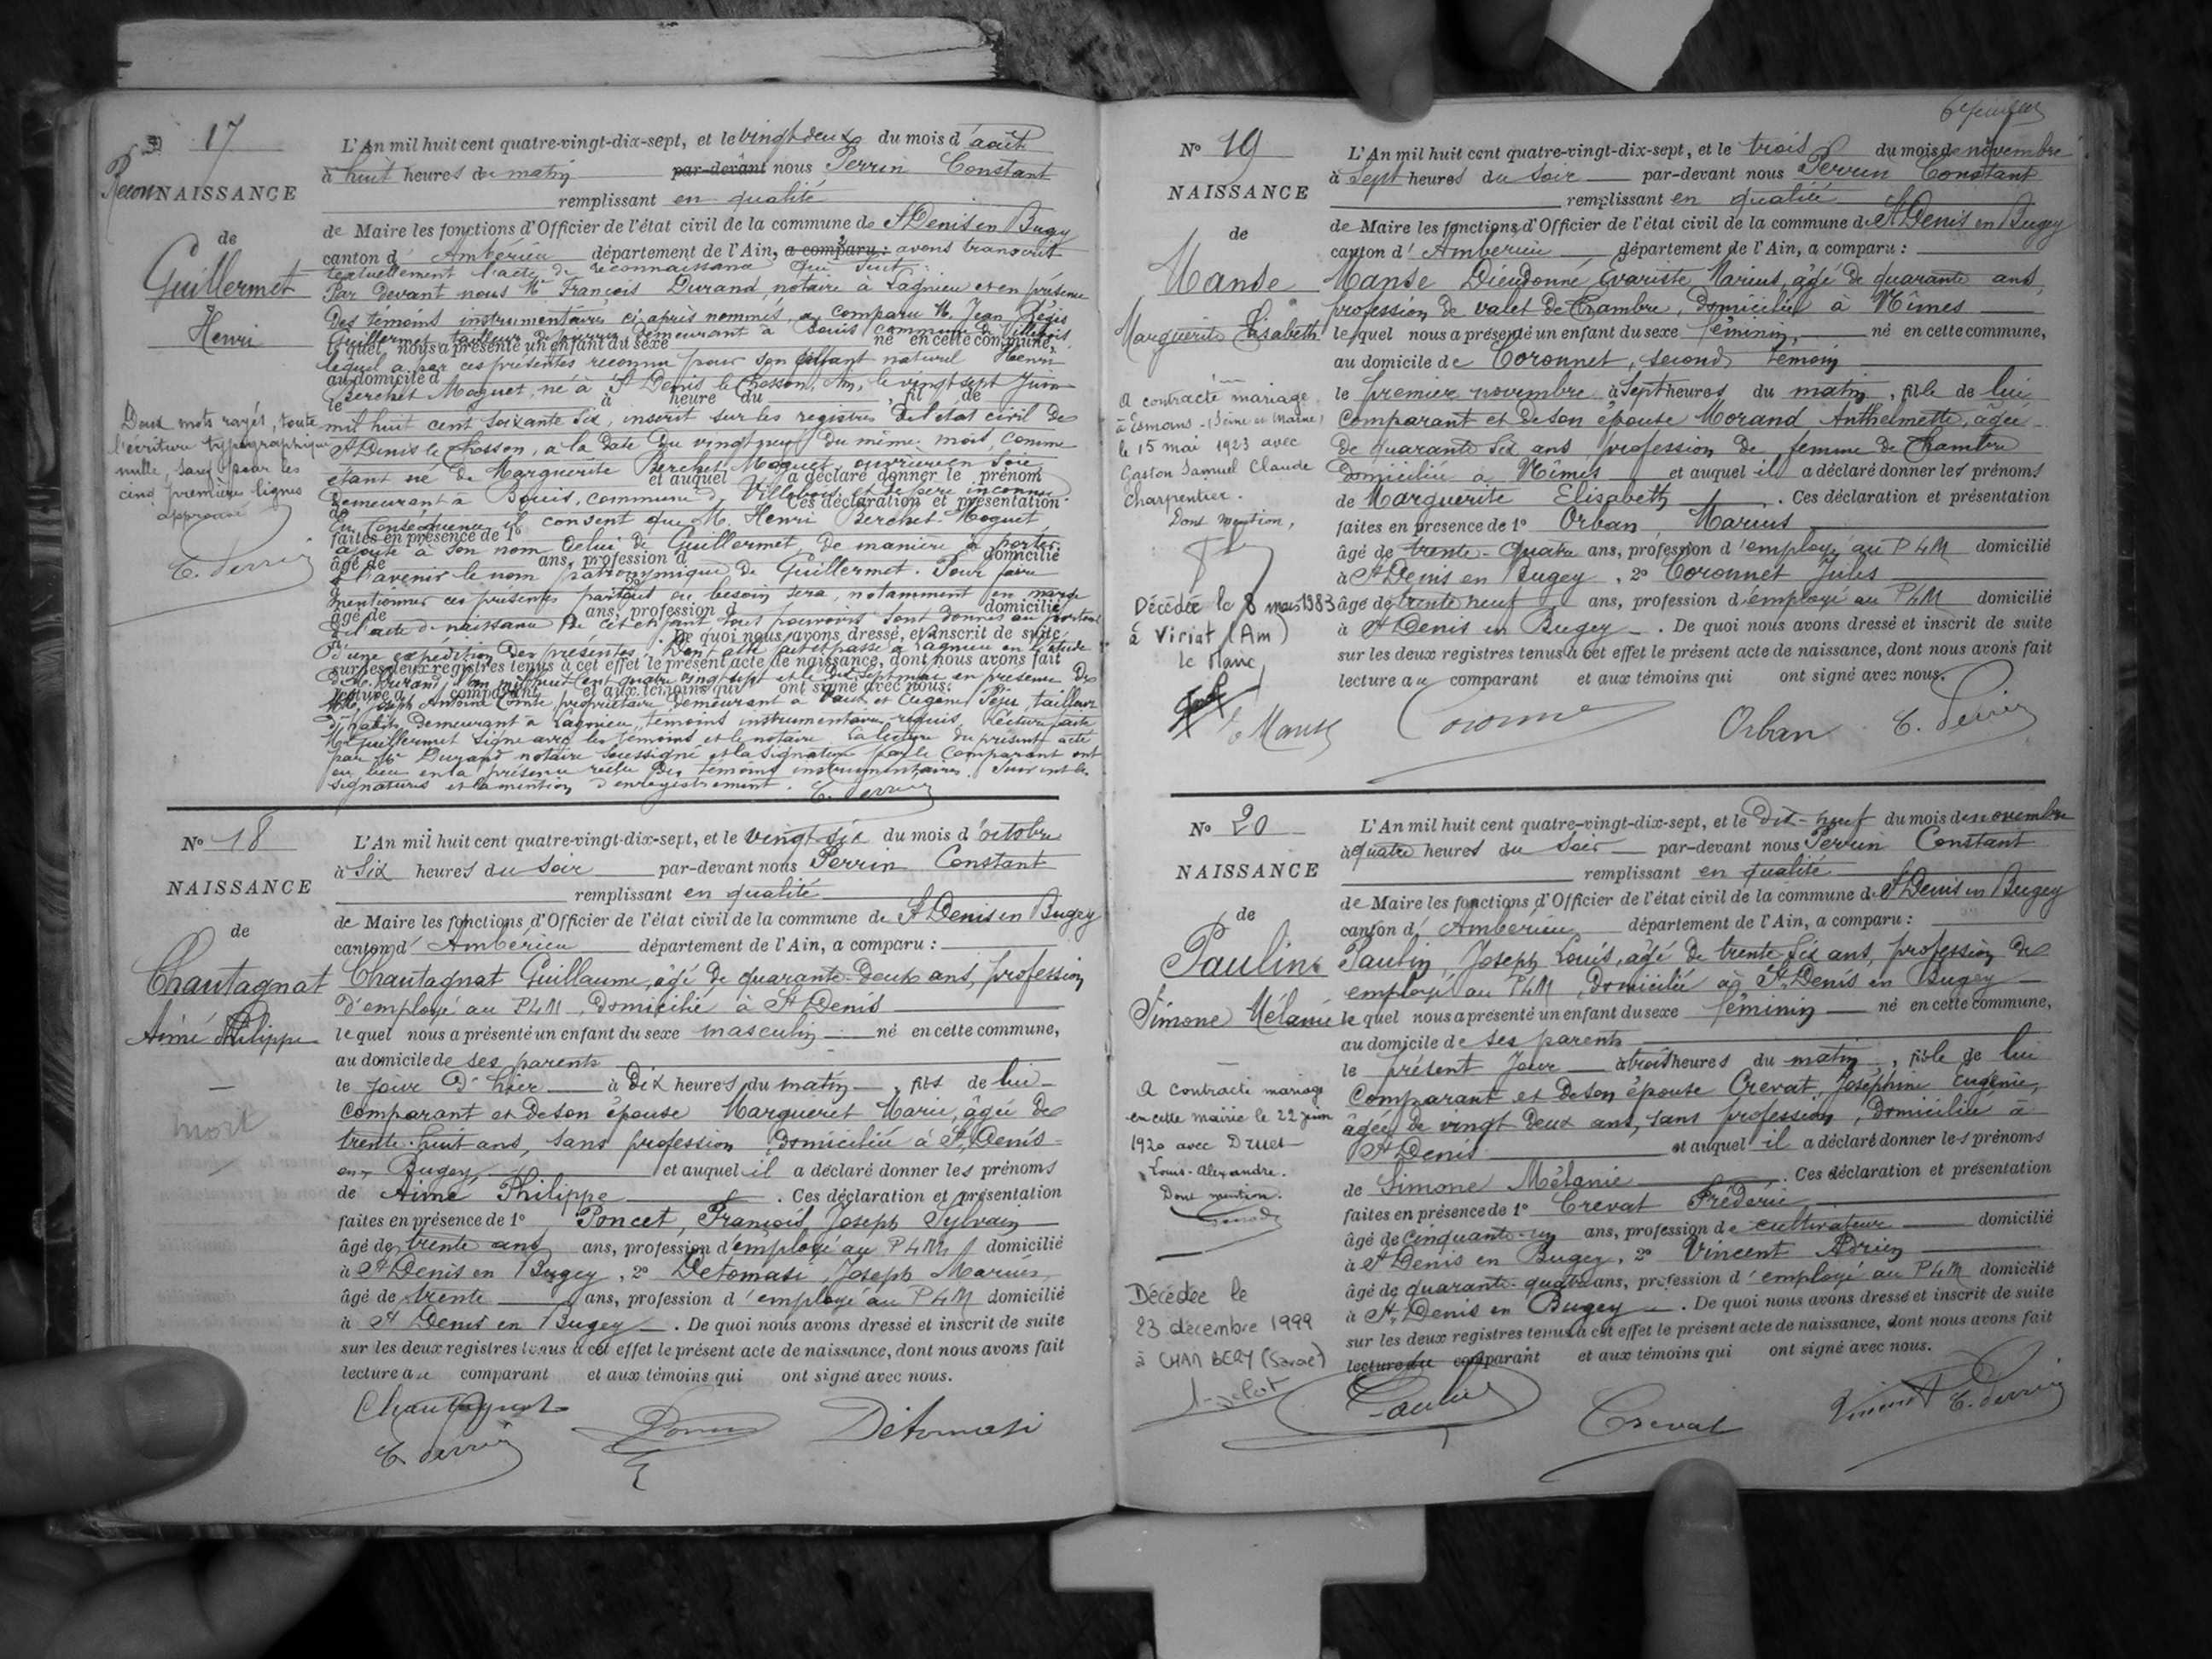 N° 17
ReconNAISSANCE
de
Guillermet
Henri
Deux mots rayés, toute
l'écriture typographique
nulle, sauf pour les
cinq premières lignes
approuvé
C. Perrin
L'An mil huit cent quatre-vingt-dix-sept, et le vingt deux du mois d'août
à huit heures du matin par-devant nous Perrin Constant
remplissant en qualité
de Maire les fonctions d'Officier de l'état civil de la commune de St Denis en Bugey
canton d' Ambérieu département de l'Ain, a comparu : avons transcrit
textuellement l'acte de reconnaissance qui suit :
Par devant nous Me François Durand, notaire à Lagnieu et en présence
des témoins instrumentaires ci-après nommés, a comparu M. Jean Régis
Guillermet, tailleur de pierres demeurant à Bouis commune de Villebois,
le quel nous a présenté un enfant du sexe né en cette commune,
lequel a par ces présentes reconnu pour son enfant naturel Henri
au domicile d
Berchet Moquet, né à St Denis le Chosson, Ain, le vingt sept Juin
le à heure du , fil de
mil huit cent soixante six, inscrit sur les registres de l'état civil de
St Denis le Chosson, à la date du vingt neuf du même mois, comme
étant né de Marguerite Berchet Moquet, ouvrière en soie,
et auquel a déclaré donner le prénom
demeurant à Bouis, commune de Villebois et de père inconnu.
de . Ces déclaration et présentation
En conséquence il consent que M. Henri Berchet-Moquet
faites en présence de 1°
ajoute à son nom celui de Guillermet, de manière à porter
âgé de ans, profession d domicilié
à l'avenir le nom patronymique de Guillermet. Pour faire
mentionner ces présentes partout où besoin sera, notamment en marge
âgé de ans, profession d domicilié
de l'acte de naissance de cet enfant tous pouvoirs sont donnés au porteur
à . De quoi nous avons dressé, et inscrit de suite
d'une expédition des présentes. Dont acte fait et passé à Lagnieu en l'étude
sur les deux registres tenus à cet effet le présent acte de naissance, dont nous avons fait
de Me Durand, l'an mil huit cent quatre vingt sept et le dix sept mai en présence de
lecture a comparant et aux témoins qui ont signé avec nous.
MM. Joseph Antoine Comte, propriétaire demeurant à Vaux et Eugène Péju, tailleur
d'habits, demeurant à Lagnieu, témoins instrumentaires requis. Lecture faite
M. Guillermet signe avec les témoins et le notaire. La lecture du présent acte
par Me Durand notaire soussigné et la signature par le comparant ont
eu lieu en la présence réelle des témoins instrumentaires. Suivent les
signatures et la mention d'enregistrement. C. Perrin
N° 18
NAISSANCE
de
Chautagnat
Aimé Philippe
mort
L'An mil huit cent quatre-vingt-dix-sept, et le vingt six du mois d'octobre
à Six heures du soir par-devant nous Perrin Constant
remplissant en qualité
de Maire les fonctions d'Officier de l'état civil de la commune de St Denis en Bugey
canton d' Ambérieu département de l'Ain, a comparu :
Chautagnat Guillaume, âgé de quarante-deux ans, profession
d'employé au PLM, domicilié à St Denis
le quel nous a présenté un enfant du sexe masculin né en cette commune,
au domicile de ses parents
le jour d'hier à dix heures du matin, fils de lui
comparant et de son épouse Margueret Marie, âgée de
trente-huit ans, sans profession, domiciliée à St Denis-
en Bugey et auquel il a déclaré donner les prénoms
de Aimé Philippe . Ces déclaration et présentation
faites en présence de 1° Poncet, François Joseph Sylvain
âgé de trente ans ans, profession d'employé au PLM domicilié
à St Denis en Bugey, 2° Detomasi, Joseph Marius
âgé de trente ans, profession d'employé au PLM domicilié
à St Denis en Bugey . De quoi nous avons dressé et inscrit de suite
sur les deux registres tenus à cet effet le présent acte de naissance, dont nous avons fait
lecture au comparant et aux témoins qui ont signé avec nous.
Chautagnat
C. Perrin
Detomasi
N° 19
NAISSANCE
de
Manse
Marguerite Elisabeth
A contracté mariage
à Esmans (Seine et Marne)
le 15 mai 1923 avec
Gaston Samuel Claude
Charpentier.
Dont mention,
Décédée le 8 mars 1983
à Viriat (Ain)
le Maire,
L'An mil huit cent quatre-vingt-dix-sept, et le trois du mois de novembre
à Sept heures du soir par-devant nous Perrin Constant
remplissant en qualité
de Maire les fonctions d'Officier de l'état civil de la commune de St Denis en Bugey
canton d' Ambérieu département de l'Ain, a comparu :
Manse Dieudonné Evariste Marius, âgé de quarante ans,
profession de valet de Chambre, domicilié à Nîmes
le quel nous a présenté un enfant du sexe féminin, né en cette commune,
au domicile de Coronnet, second témoin
le premier novembre à Sept heures du matin, fille de lui
comparant et de son épouse Morand, Anthelmette, âgée
de quarante six ans, profession de femme de Chambre
domiciliée à Nîmes et auquel il a déclaré donner les prénoms
de Marguerite Elisabeth . Ces déclaration et présentation
faites en présence de 1° Orban Marius
âgé de trente-quatre ans, profession d'employé au PLM domicilié
à St Denis en Bugey, 2° Coronnet Jules
âgé de trente neuf ans, profession d'employé au PLM domicilié
à St Denis en Bugey . De quoi nous avons dressé et inscrit de suite
sur les deux registres tenus à cet effet le présent acte de naissance, dont nous avons fait
lecture au comparant et aux témoins qui ont signé avec nous.
Orban
C. Perrin
N° 20
NAISSANCE
de
Paulin
Simone Mélanie
A contracté mariage
en cette mairie le 22 juin
1920 avec Druet
Louis-Alexandre.
Dont mention.
Décédée le
23 décembre 1999
à CHAMBERY (Savoie)
L'An mil huit cent quatre-vingt-dix-sept, et le dix-neuf du mois de novembre
à quatre heures du soir par-devant nous Perrin Constant
remplissant en qualité
de Maire les fonctions d'Officier de l'état civil de la commune de St Denis en Bugey
canton d' Ambérieu département de l'Ain, a comparu :
Paulin, Joseph Louis, âgé de trente six ans, profession de
employé au PLM, domicilié à St Denis en Bugey
le quel nous a présenté un enfant du sexe féminin né en cette commune,
au domicile de ses parents
le présent Jour à trois heures du matin, fille de lui
comparant et de son épouse Crevat, Joséphine Eugénie,
âgée de vingt deux ans, sans profession, domiciliée à
St Denis et auquel il a déclaré donner les prénoms
de Simone Mélanie . Ces déclaration et présentation
faites en présence de 1° Crevat Frédéric
âgé de cinquante-un ans, profession de cultivateur domicilié
à St Denis en Bugey, 2° Vincent Adrien
âgé de quarante-quatre ans, profession d'employé au PLM domicilié
à St Denis en Bugey . De quoi nous avons dressé et inscrit de suite
sur les deux registres tenus à cet effet le présent acte de naissance, dont nous avons fait
lecture au comparant et aux témoins qui ont signé avec nous.
Paulin
Crevat
Vincent A
C. Perrin